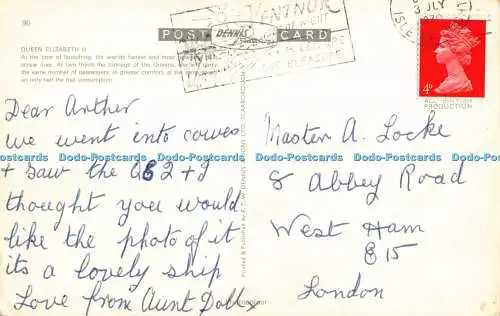 90
QUEEN ELIZABETH II
At the time of launching, the world's fastest and most
screw liner. At two thirds the tonnage of the Queens, she will carry
the same number of passengers, in greater comfort, at the same speed
on only half the fuel consumption
POST CARD
DENNIS
VENTNOR
AND PLEASURE
3 JLY
ISLE
4D
ALL-BRITISH
PRODUCTION
Dear Arther
we went into cowes
+ saw the Q E 2 + I
thought you would
like the photo of it
its a lovely ship
Love from Aunt Doll x
Printed & Published by E. T. W. DENNIS LTD. SCARBOROUGH
Master A. Locke
8 Abbey Road
West Ham
E 15
London
Dodo-Postcards Dodo-Postcards Dodo-Postcards Dodo-Postcards Dodo-Postcards